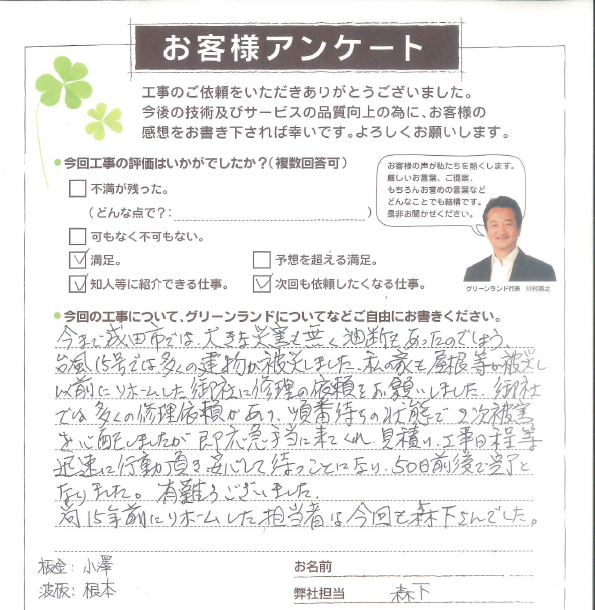 お客様アンケート
工事のご依頼をいただきありがとうございました。
今後の技術及びサービスの品質向上の為に、お客様の
感想をお書き下されば幸いです。よろしくお願いします。
今回工事の評価はいかがでしたか?(複数回答可)
不満が残った。
(どんな点で?: )
可もなく不可もない。
満足。
予想を超える満足。
知人等に紹介できる仕事。
次回も依頼したくなる仕事。
お客様の声が私たちを熱くします。
厳しいお言葉、ご提案、
もちろんお誉めの言葉など
どんなことでも結構です。
是非お聞かせください。
グリーンランド代表 川村英之
今回の工事について、グリーンランドについてなどご自由にお書きください。
今まで成田市では、大きな災害も無く油断もあったのでしょう、
台風15号では多くの建物が被災しました、私の家も屋根等が被災し
以前にリホームした御社に修理の依頼をお願いしました、御社
では多くの修理依頼があり、順番待ちの状態で2次被害
を心配しましたが即応急手当に来てくれ、見積り、工事日程等
迅速に行動頂き安心して待つことになり、50日前後で完了と
なりました。有難うございました、
尚15年前にリホームした担当者は今回も森下さんでした。
板金: 小澤
波板: 根本
お名前
弊社担当 森下